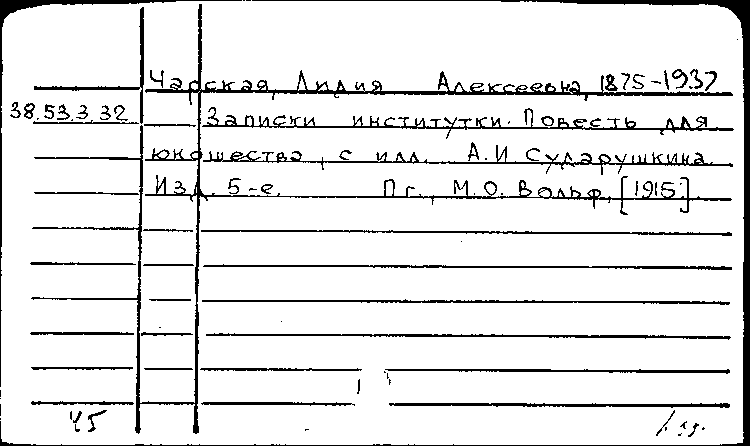 Чарская, Лидия Алексеевна, 1875-1937
38.53.3.32 Записки институтки. Повесть для
юношества, с илл. А.И Сударушкина.
Изд. 5-е. Пг., М.О. Вольф, [1915.]
45